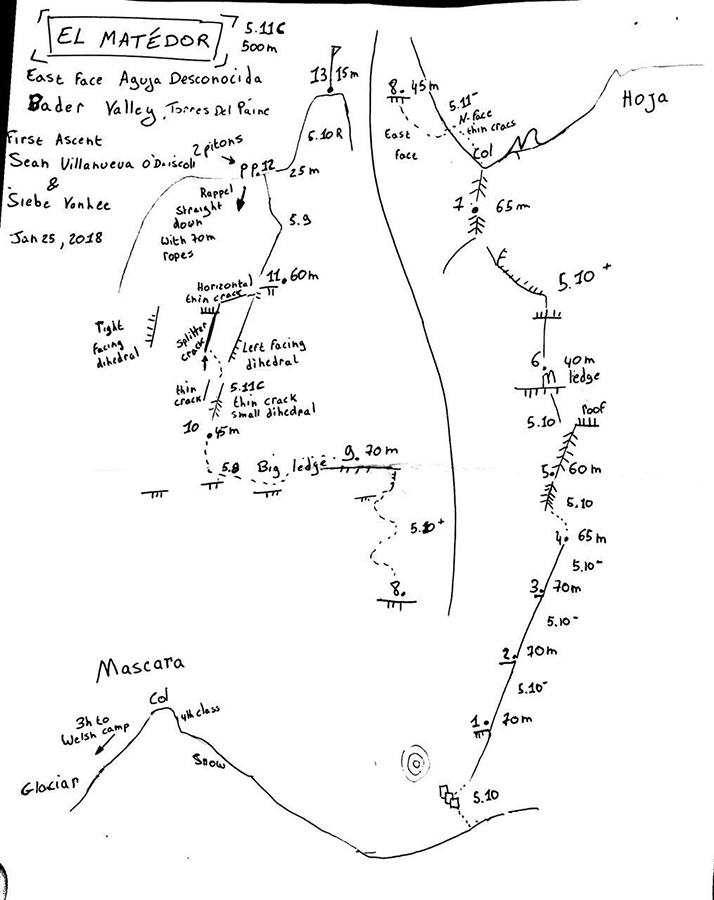 EL MATÉDOR
5.11C
500m
East Face Aguja Desconocida
Bader Valley, Torres Del Paine
First Ascent
Sean Villanueva O'Driscoll
&
Siebe Vanhee
Jan 25, 2018
2 pitons
PP.12
25m
13 15m
5.10R
Rappel
Straight
down
With 70m
ropes
5.9
11. 60m
Horizontal
thin crack
Right
facing
dihedral
Splitter
crack
Left facing
dihedral
thin
crack
5.11C
thin crack
small dihedral
10
45m
5.8
Big ledge
9. 70m
5.10+
8.
8. 45m
East
face
5.11-
N-face
thin cracs
Col
Hoja
7
65m
5.10+
6.
40m
ledge
5.10
roof
5. 60m
5.10
4. 65m
5.10-
3. 70m
5.10-
2. 70m
5.10-
1. 70m
5.10
Mascara
Col
4th class
3h to
Welsh camp
Glaciar
Snow